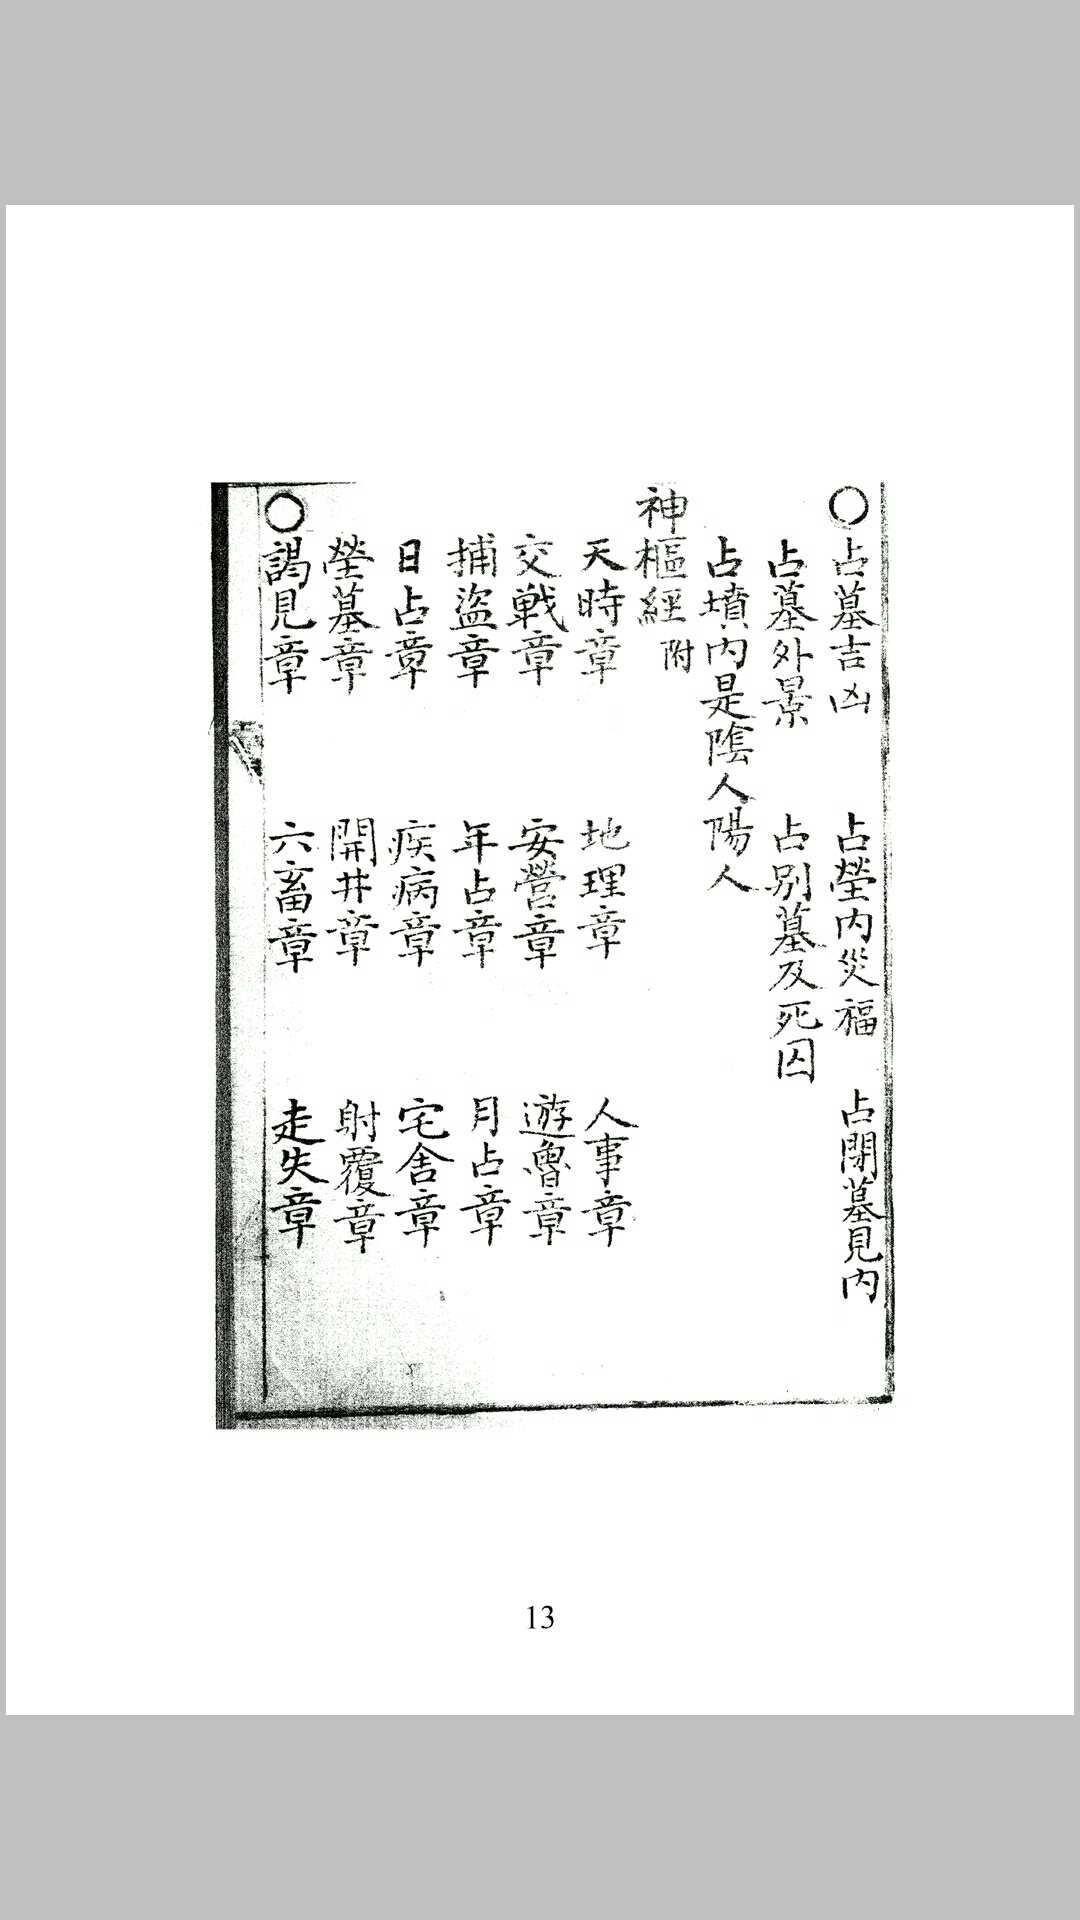 ○占墓吉凶 占塋内災福 占閉墓見内
占墓外景 占別墓及死囚
占墳内是陰人陽人
神樞經附
天時章 地理章 人事章
交戰章 安營章 遊魯章
捕盜章 年占章 月占章
日占章 疾病章 宅舍章
塋墓章 開井章 射覆章
○謁見章 六畜章 走失章
13